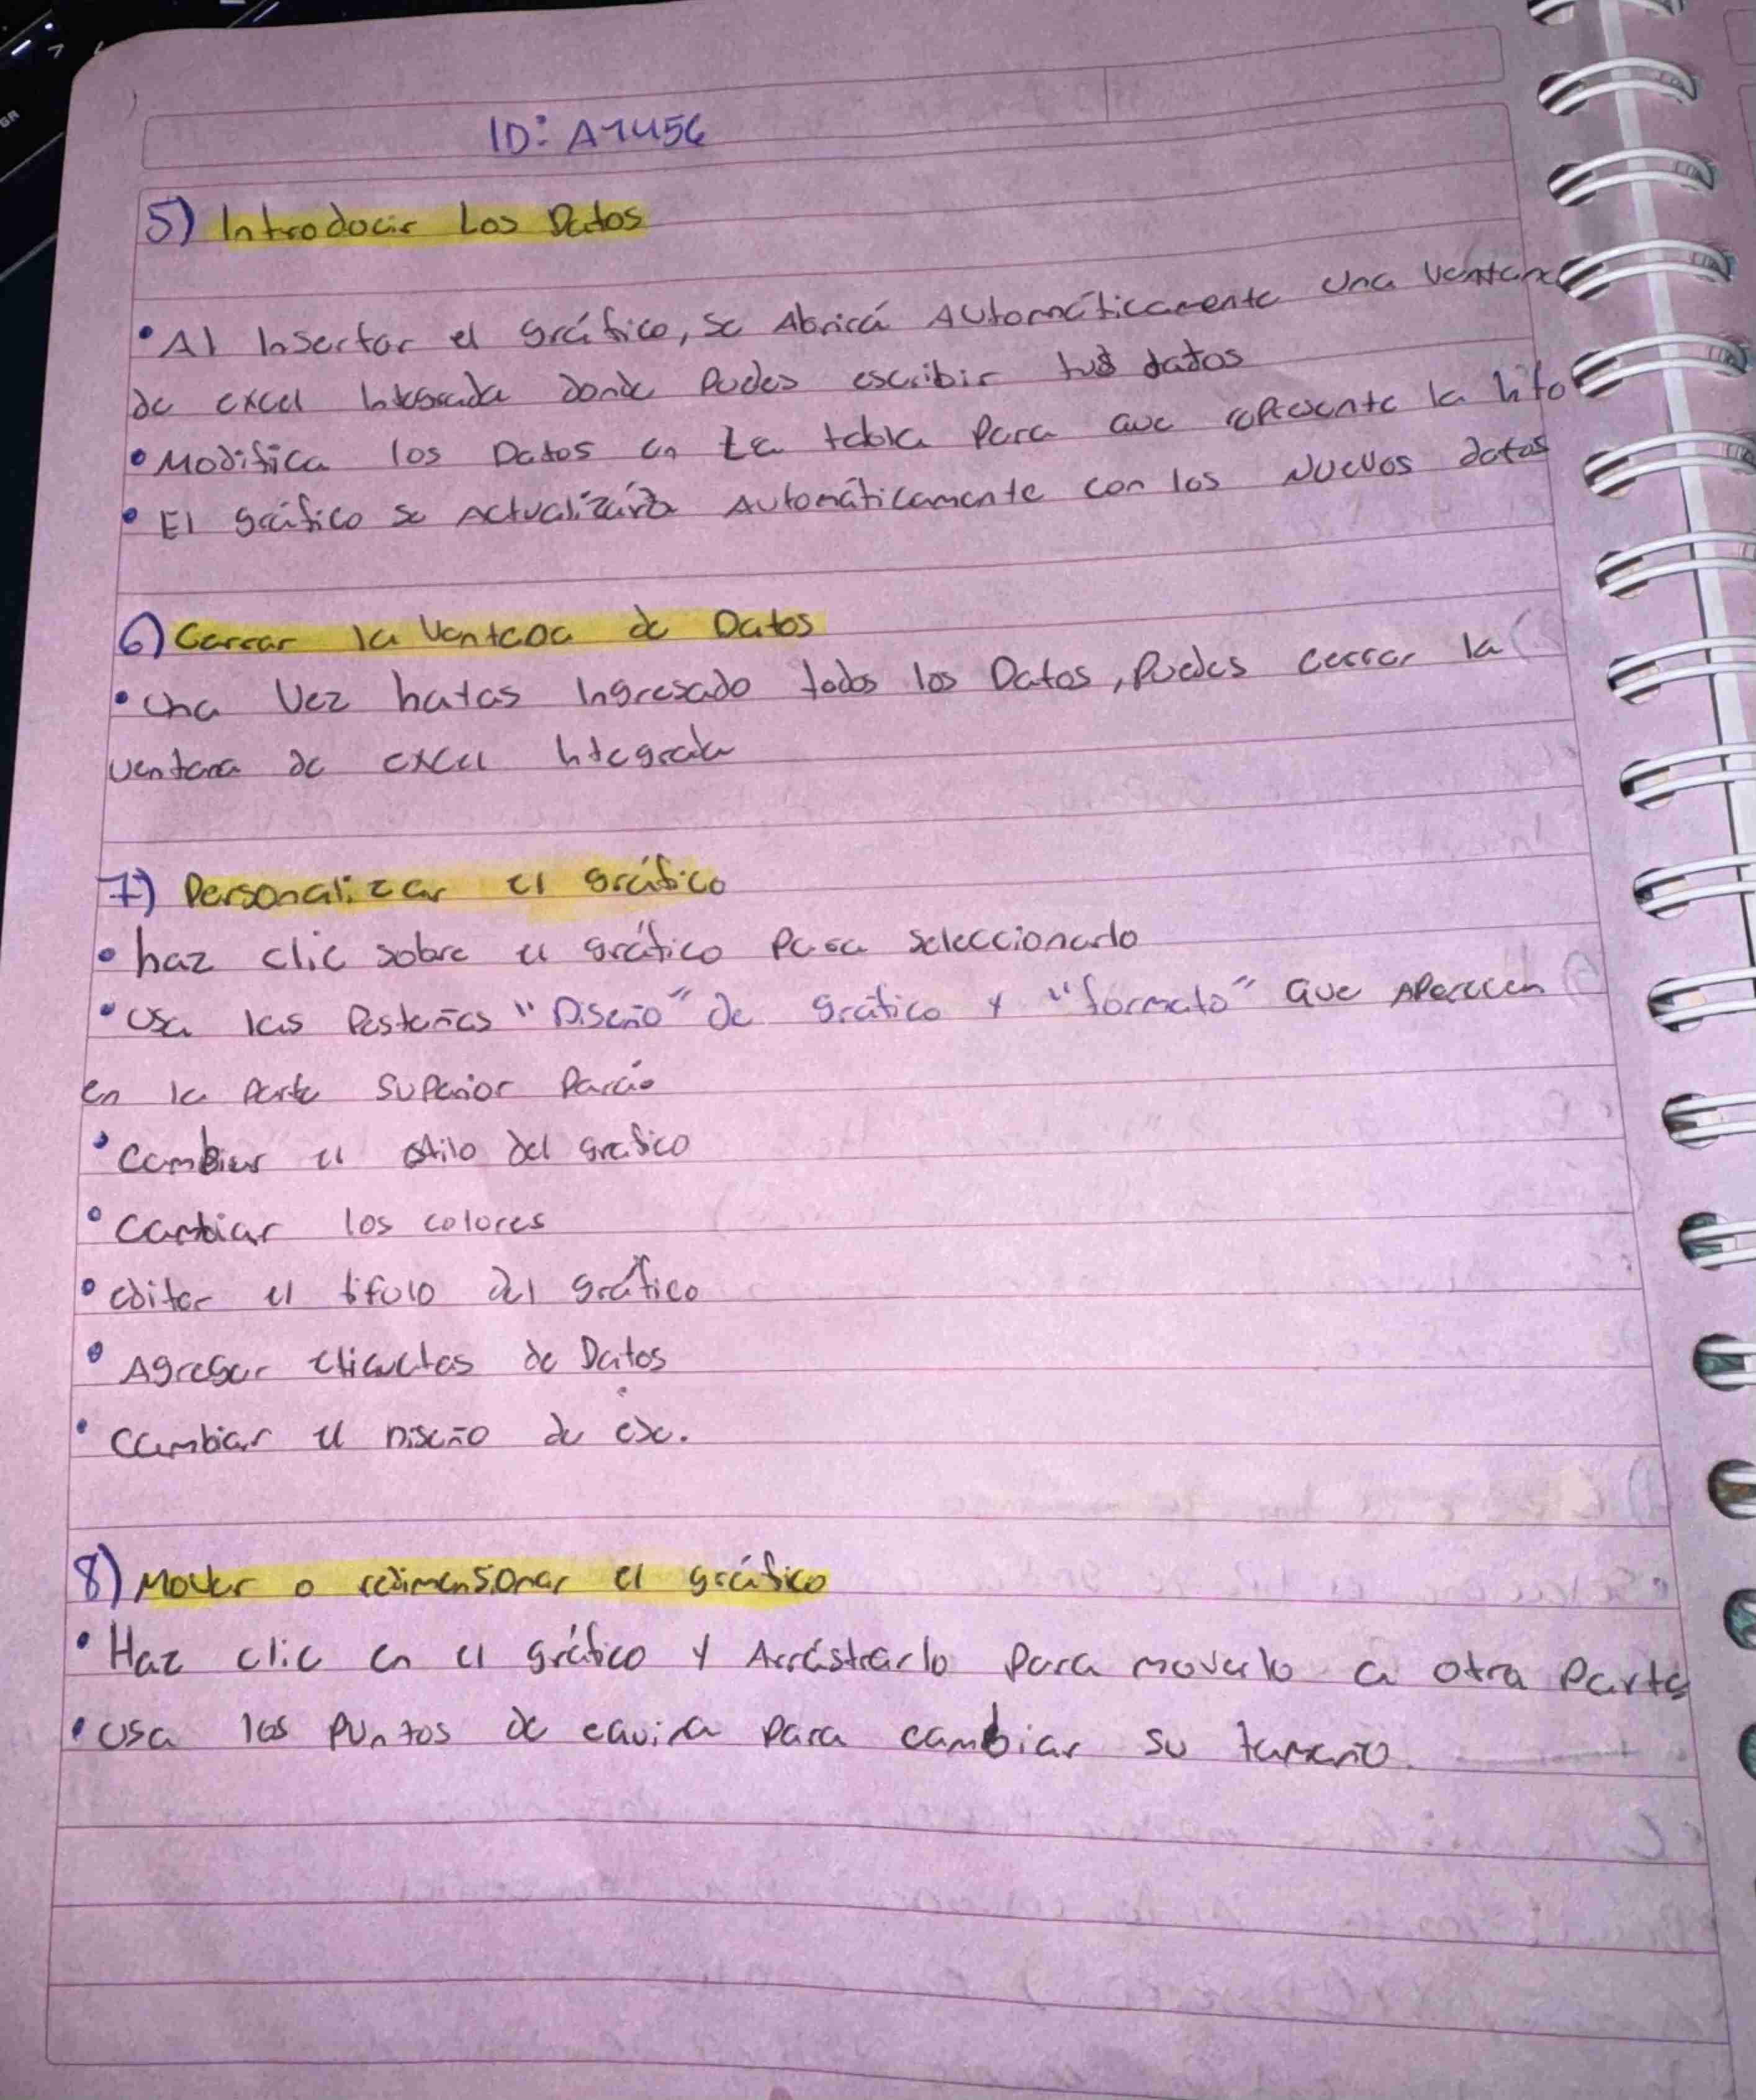 ID: A1456
5) Introducir Los Datos
• Al Insertar el gráfico, se Abrirá Automáticamente una Ventana
de excel Integrada donde Puedes escribir tus datos
• Modifica los Datos en La tabla Para que represente la info
• El gráfico se Actualizará Automáticamente con los Nuevos datos
6) Cerrar la Ventana de Datos
• Una Vez hayas Ingresado todos los Datos, Puedes cerrar la
Ventana de excel Integrada
7) Personalizar el gráfico
• haz clic sobre el gráfico Para seleccionarlo
• Usa las Pestañas "Diseño" de gráfico y "formato" que Aparecen
en la Parte Superior Para:
• Cambiar el estilo del gráfico
• Cambiar los colores
• editar el título del gráfico
• Agregar etiquetas de Datos
• Cambiar el Diseño de eje.
8) Mover o redimensionar el gráfico
• Haz clic en el gráfico y Arrástrarlo Para moverlo a otra Parte
• Usa los Puntos de equina Para cambiar su tamaño.